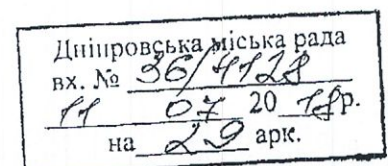 Дніпровська міська рада
вх. № 36/4128
11 07 20 18р.
на 29 арк.